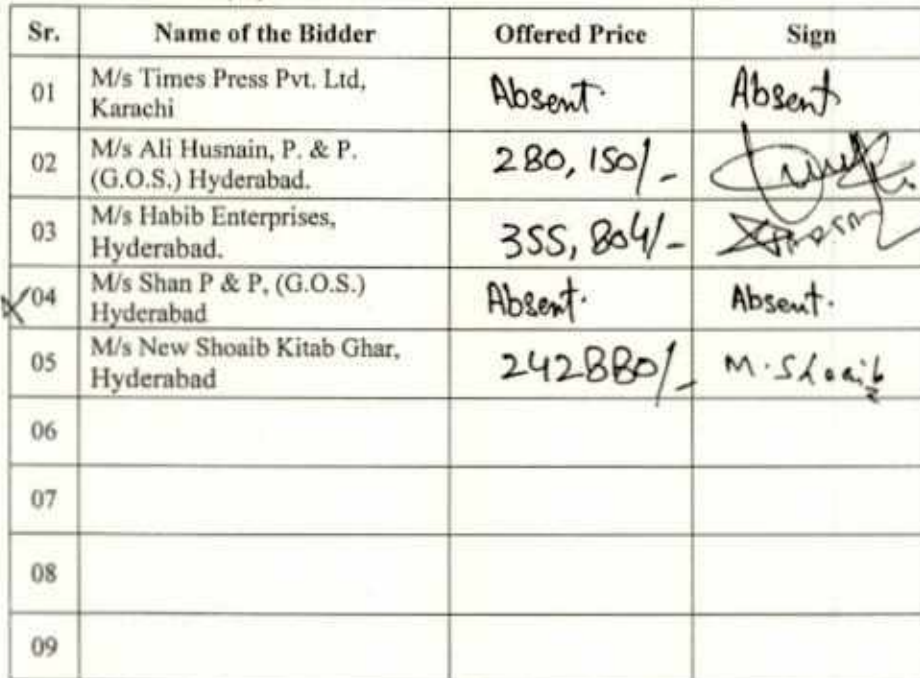 Sr. Name of the Bidder Offered Price Sign
01 M/s Times Press Pvt. Ltd, Karachi Absent. Absent
02 M/s Ali Husnain, P. & P. (G.O.S.) Hyderabad. 280,150/-
03 M/s Habib Enterprises, Hyderabad. 355,804/-
04 M/s Shan P & P, (G.O.S.) Hyderabad Absent. Absent.
05 M/s New Shoaib Kitab Ghar, Hyderabad 242880/- M.Shoaib
06
07
08
09